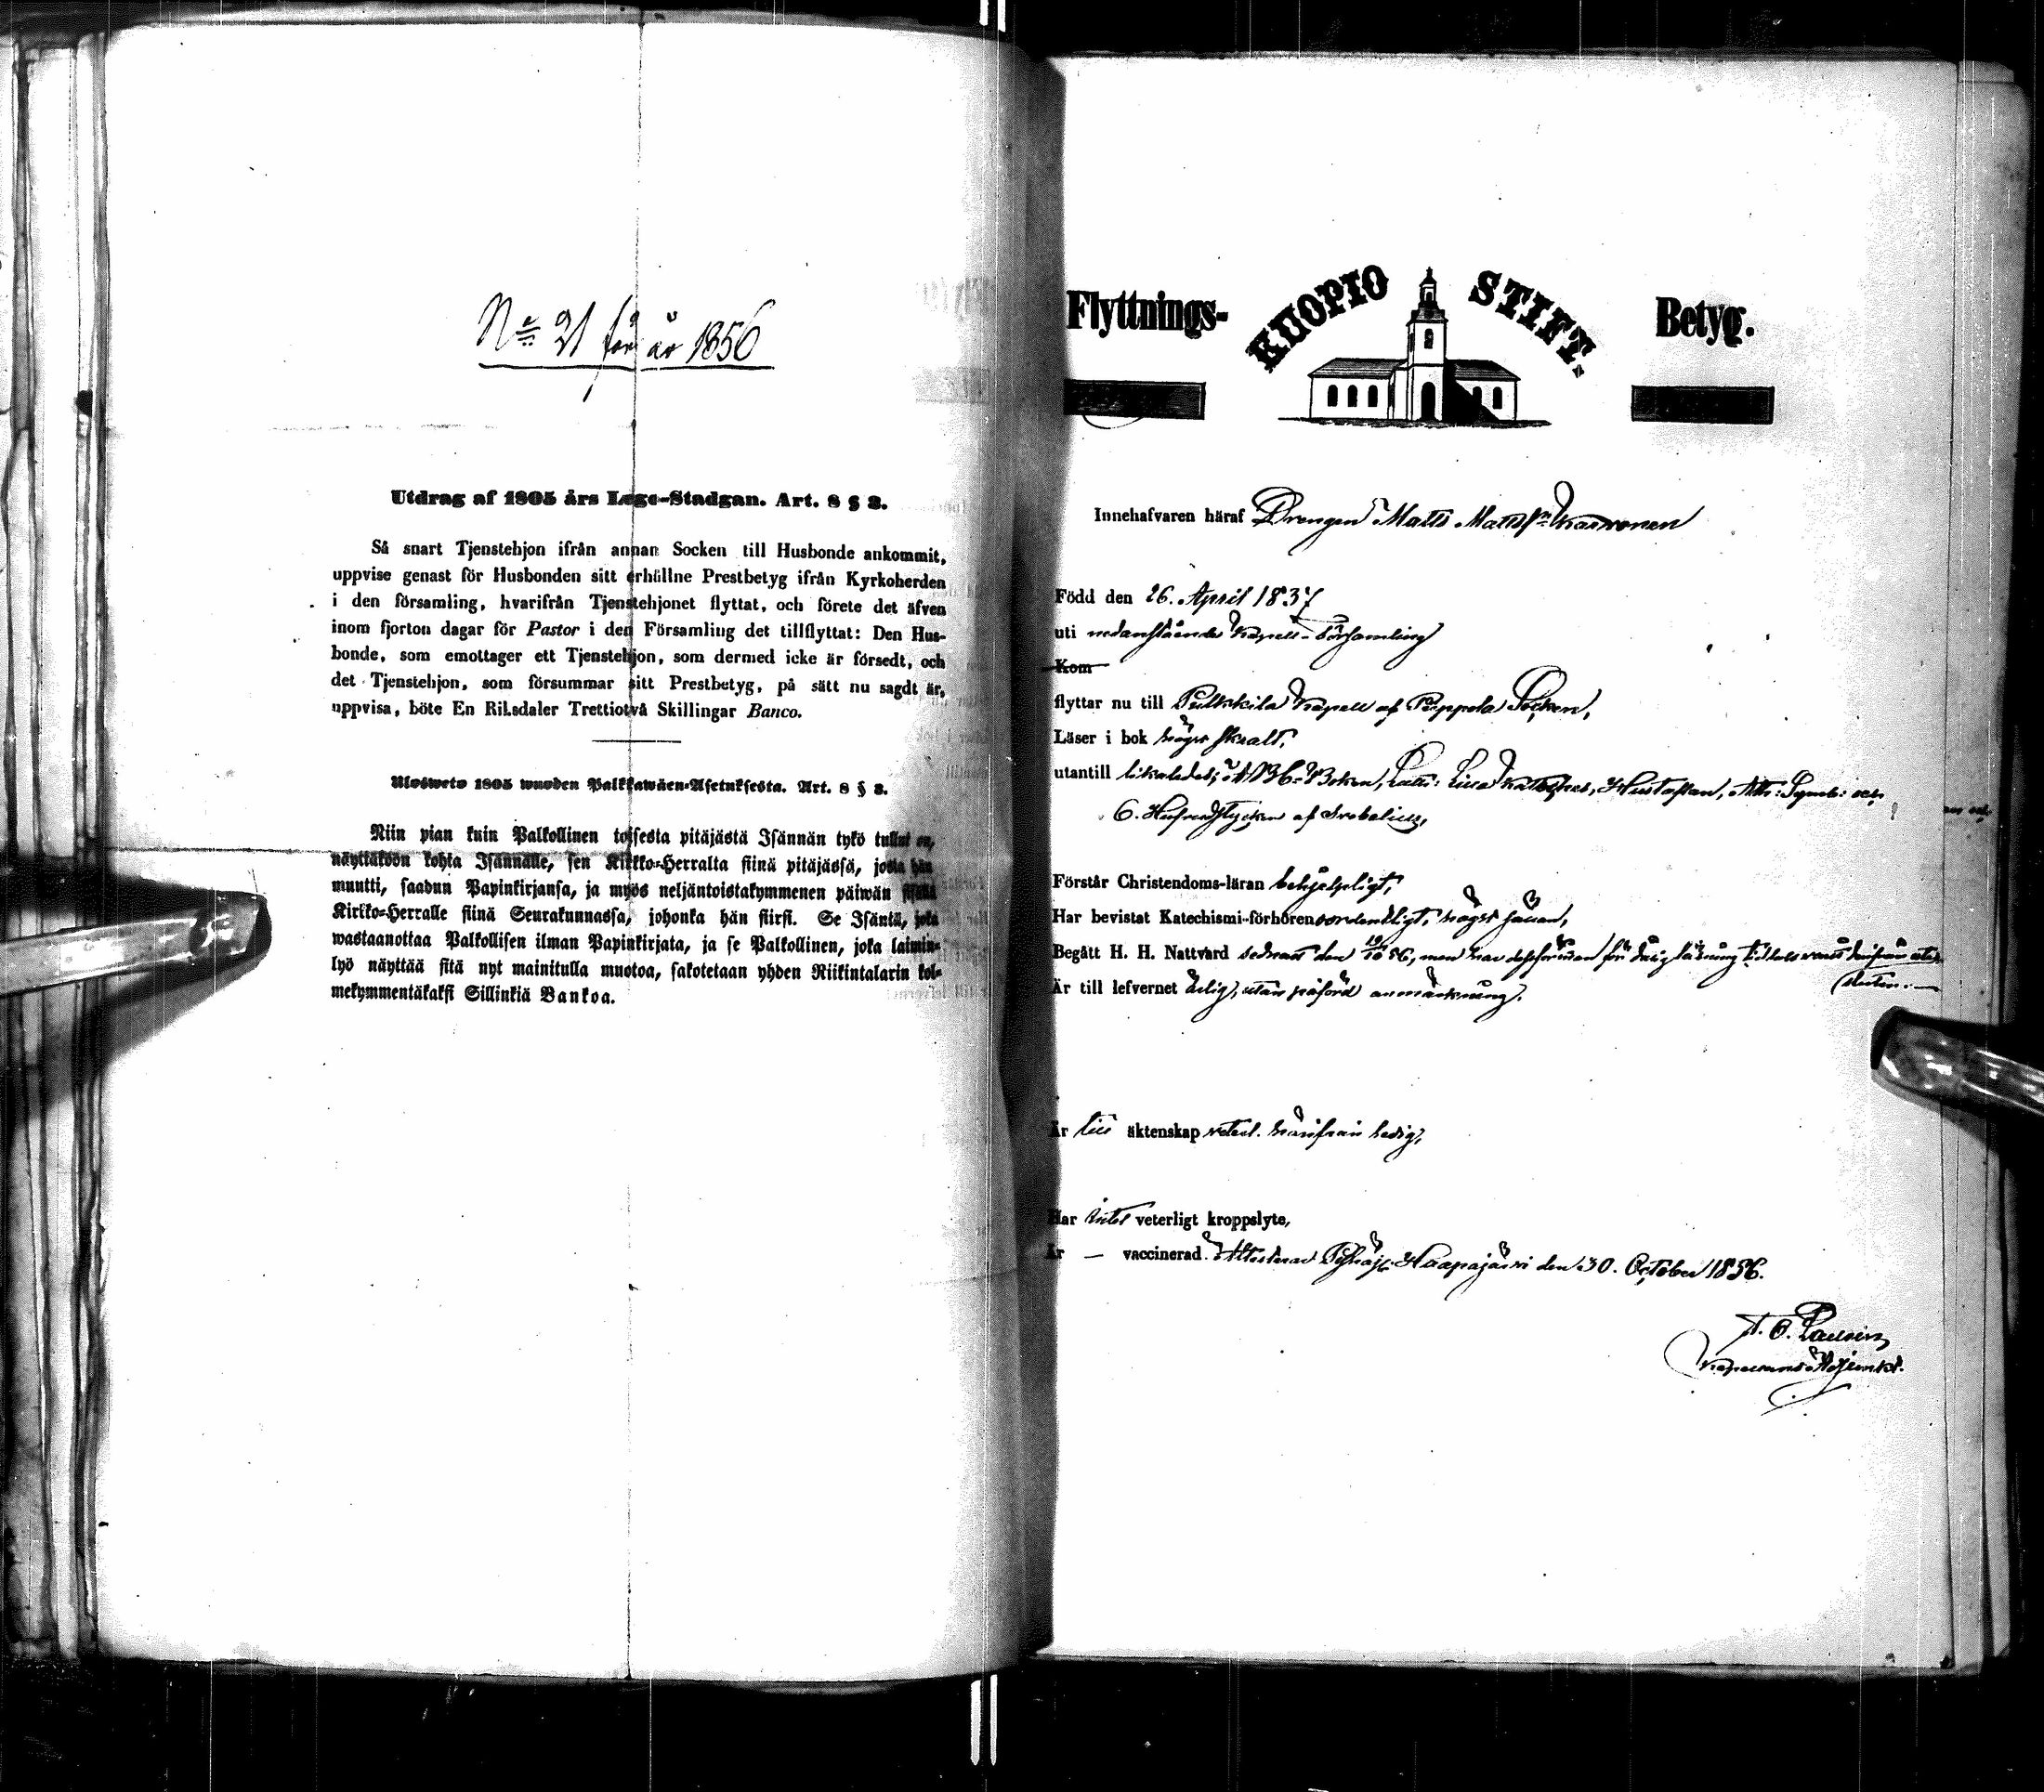 No 21 för år 1856
Utdrag af 1805 års Lego-Stadgan. Art. 8 § 3.
Så snart Tjenstehjon ifrån annan Socken till Husbonde ankommit,
uppvise genast för Husbonden sitt erhållne Prestbetyg ifrån Kyrkoherden
i den församling, hvarifrån Tjenstehjonet flyttat, och förete det äfven
inom fjorton dagar för Pastor i den Församling det tillflyttat: Den Hus-
bonde, som emottager ett Tjenstehjon, som dermed icke är försedt, och
det Tjenstehjon, som försummar sitt Prestbetyg, på sätt nu sagdt är,
uppvisa, böte En Riksdaler Trettiotvå Skillingar Banco.
Ulosweto 1805 wuoden Palkkawäen-Asetuksesta. Art. 8 § 3.
Niin pian kuin Palkollinen toisesta pitäjästä Isännän tykö tullut on,
näyttäköön kohta Isännälle, sen Kirkko-Herralta siinä pitäjässä, josta hän
muutti, saadun Papinkirjansa, ja myös neljäntoistakymmenen päiwän sisällä
Kirkko-Herralle siinä Seurakunnassa, johonka hän siirsi. Se Isäntä, joka
wastaanottaa Palkollisen ilman Papinkirjata, ja se Palkollinen, joka laimin-
lyö näyttää sitä nyt mainitulla muotoa, sakotetaan yhden Riikintalarin kol-
mekymmentäkaksi Sillinkiä Bankoa.
Flyttnings- KUOPIO STIFT. Betyg.
Innehafvaren häraf Drengen Matts Mattsson
Född den 26. April 1837
uti nedanstående Kapell-Församling
Kom
flyttar nu till Pulkkila Kapell af Pippola Socken,
Läser i bok något svalt,
utantill likaledes, ABC-Boken, Luth: Lilla Kateches, Hustaflan, Ath: Symb: och
6. Hufvudstycken af Svebelius,
Förstår Christendoms-läran behjelpligt,
Har bevistat Katechismi-förhören ordentligt, något sällan,
Begått H. H. Nattvard sednast den 56, men har dessförinnan för dålig läsning
Är till lefvernet ärlig, utan påförd anmärkning.
Är till äktenskap veterl. härifrån ledig,
Har intet veterligt kroppslyte,
Är — vaccinerad. Attesterar Pyhäj. Haapajärvi den 30. October 1856.
Kapellans Adjunkt.